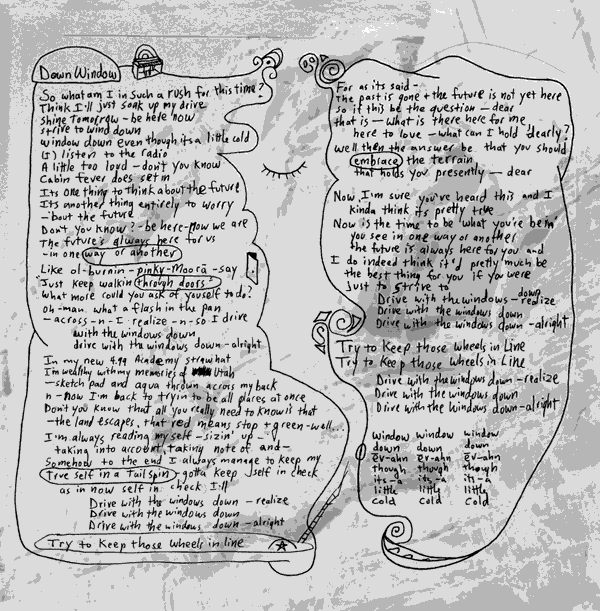 Down Window
So what am I in such a rush for this time?
Think I'll just soak up my drive
Shine Tomorrow - be here now
strive to wind down
window down even though its a little cold
(I) listen to the radio
A little too loud - don't you know
Cabin fever does set in
Its one thing to think about the future
Its another thing entirely to worry
-'bout the future
Don't you know? - be here-now we are
The future's always here for us
-in one way or another
Like ol-burnin-pinky-Moorā-say
"Just keep walkin through doors"
what more could you ask of youself to do?
Oh-man what a flash in the pan
-across-n-I realize-n-so I drive
with the windows down
drive with the windows down-alright
In my new 4.99 Academy straw hat
I'm wealthy with my memories of Utah
-sketch pad and aqua thrown across my back
n-now I'm back to tryin to be all places at once
Don't you know that all you really need to know is that
-the land escapes, that red means stop + green-well...
I'm always reading myself-sizin' up-
-taking into account, taking note of and-
Somehow to the end I always manage to keep my
True self in a Tail spin-gotta keep self in check
as in now self in check I'll
Drive with the windows down-realize
Drive with the windows down
Drive with the windows down-alright
Try to keep those wheels in line
For as its said-
The past is gone + the future is not yet here
so if this be the question-dear
that is-what is there here for me
here to love-what can I hold dearly?
well then the answer be that you should
embrace the terrain
that holds you presently-dear
Now I'm sure you've heard this and I
kinda think its pretty true
Now is the time to be what you're bein'
you see in one way or another
the future is always here for you and
I do indeed think it'd pretty much be
the best thing for you if you were
Just to strive to
Drive with the windows down-realize
Drive with the windows down
Drive with the windows down-alright
Try to Keep those wheels in Line
Try to Keep those wheels in Line
Drive with the windows down-realize
Drive with the windows down
Drive with the windows down-alright
window window window
down down down
ēv-ahn ēv-ahn ēv-ahn
though though though
its-a its-a its-a
little little little
cold cold cold